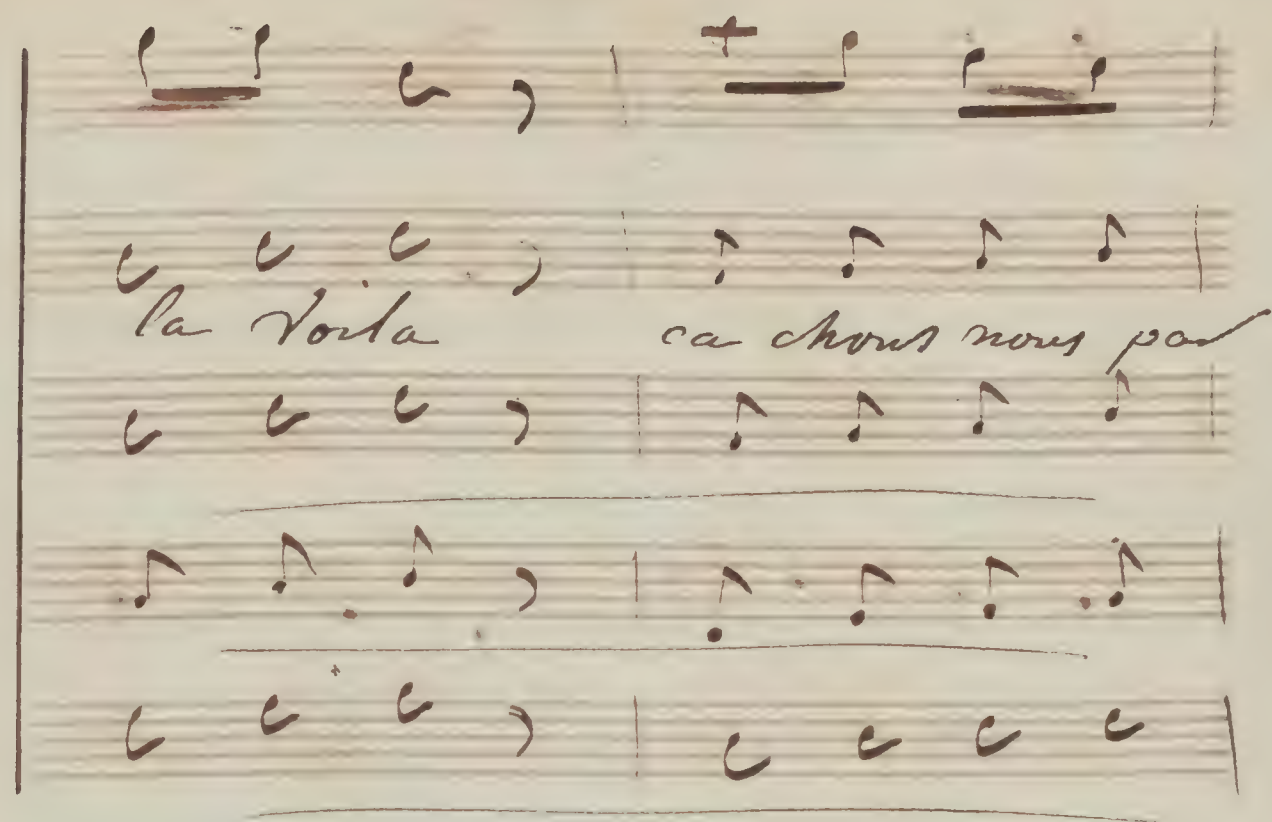 la Voila ca chons nous par